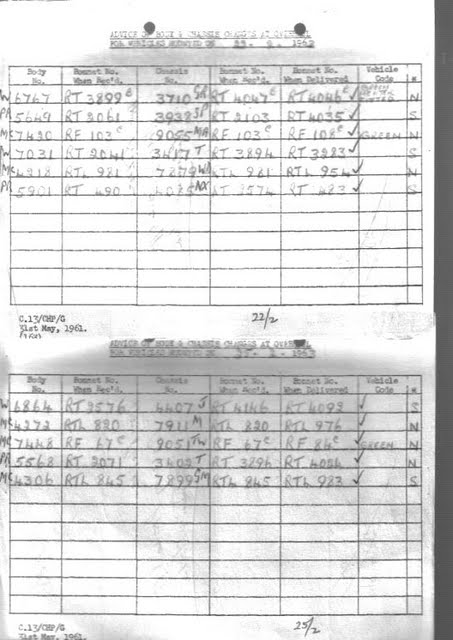 ADVICE OF BODY & CHASSIS CHANGES AT OVERHAUL
FOR VEHICLES 1963
Body No. Bonnet No. When Rec'd. Chassis No. Bonnet No. When Rec'd. Bonnet No. When Delivered Vehicle Code *
W 6767 RT 3899 E 3710 SR RT 4047 E RT 4046 E ✓ N
PR 5649 RT 2061 3938 SP RT 2103 RT 4035 ✓ S
MC 7420 RF 103 C 9055 MA RF 103 C RF 108 C ✓ GREEN N
W 7031 RT 2041 3417 T RT 3894 RT 3223 ✓ S
MC 4218 RTL 981 7879 RTL 981 RTL 954 ✓ N
PR 5901 RT 490 RT 3574 ✓ S
C.13/CHP/G
31st May, 1961.
22/2
ADVICE OF BODY & CHASSIS CHANGES AT OVERHAUL
FOR VEHICLES 1963
Body No. Bonnet No. When Rec'd. Chassis No. Bonnet No. When Rec'd. Bonnet No. When Delivered Vehicle Code *
W 6864 RT 2576 4407 J RT 4146 RT 4092 ✓ S
MC 4272 RTL 820 7911 M RTL 820 RTL 976 ✓ N
MC 7448 RF 67 C 9051 TW RF 67 C RF 84 C ✓ GREEN N
PR 5568 RT 2071 3402 T RT 3894 RT 4024 ✓ N
MC 4306 RTL 845 7899 GM RTL 845 RTL 983 ✓ S
C.13/CHP/G
31st May, 1961.
25/2